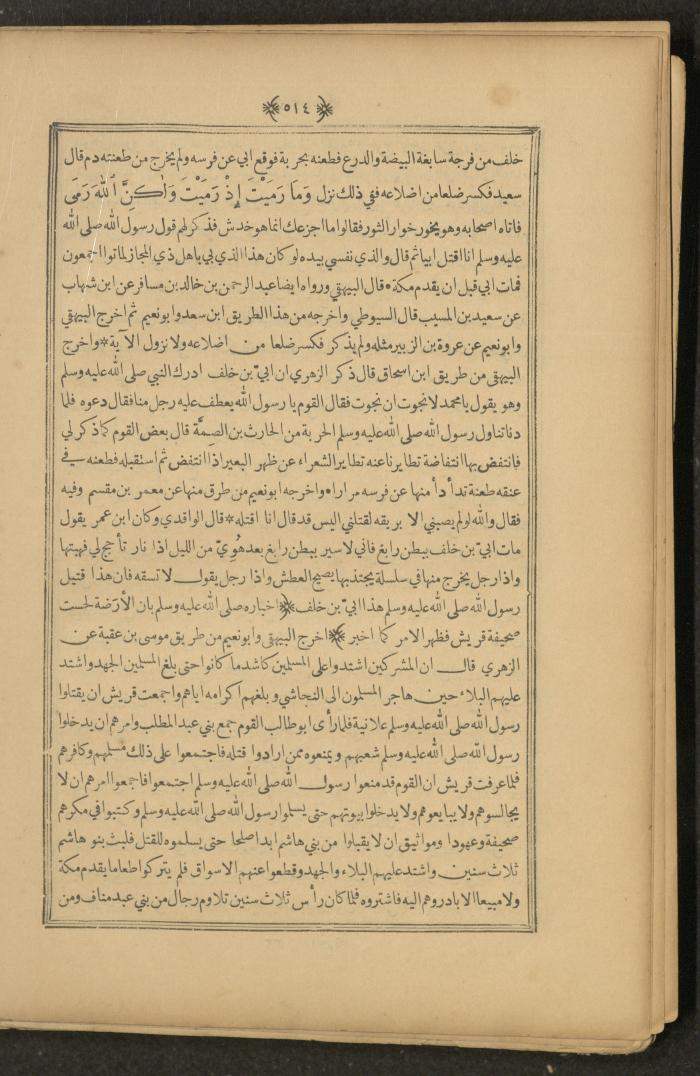 ﴿٥١٤﴾
خلف من فرجة سابغة البيضة والدرع فطعنه بحربة فوقع ابي عن فرسه ولم يخرج من طعنته دم قال
سعيد فكسر ضلعا من اضلاعه ففي ذلك نزل وَمَا رَمَيْتَ إِذْ رَمَيْتَ وَلٰكِنَّ ٱللّٰهَ رَمَى
فاتاه اصحابه وهو يخور خوار الثور فقالوا ما اجزعك انما هو خدش فذكر لهم قول رسول الله صلى الله
عليه وسلم انا اقتل ابيا ثم قال والذي نفسي بيده لو كان هذا الذي بي باهل ذي المجاز لماتوا اجمعون
فمات ابي قبل ان يقدم مكة * قال البيهقي ورواه ايضا عبد الرحمن بن خالد بن مسافر عن ابن شهاب
عن سعيد بن المسيب قال السيوطي واخرجه من هذا الطريق ابن سعد وابو نعيم ثم اخرج البيهقي
وابو نعيم عن عروة بن الزبير مثله ولم يذكر فكسر ضلعا من اضلاعه ولا نزول الآية * واخرج
البيهقي من طريق ابن اسحاق قال ذكر الزهري ان ابيّ بن خلف ادرك النبي صلى الله عليه وسلم
وهو يقول يا محمد لا نجوت ان نجوت فقال القوم يا رسول الله يعطف عليه رجل منا فقال دعوه فلما
دنا تناول رسول الله صلى الله عليه وسلم الحربة من الحارث بن الصِمَّة قال بعض القوم كما ذكر لي
فانتفض بها انتفاضة تطايرنا عنه تطاير الشعراء عن ظهر البعير اذا انتفض ثم استقبله فطعنه في
عنقه طعنة تدأدأ منها عن فرسه مرارا * واخرجه ابو نعيم من طرق منها عن معمر بن مقسم وفيه
فقال والله لو لم يصبني الا بريقه لقتلني اليس قد قال انا اقتله * قال الواقدي وكان ابن عمر يقول
مات ابيّ بن خلف ببطن رابغ فاني لاسير ببطن رابغ بعد هُوِيّ من الليل اذا نار تأجج لي فهبتها
واذا رجل يخرج منها في سلسلة يجتذبها يصيح العطش واذا رجل يقول لا تسقه فان هذا قتيل
رسول الله صلى الله عليه وسلم هذا ابيّ بن خلف ﴿اخباره صلى الله عليه وسلم بان الأرَضة لحست
صحيفة قريش فظهر الامر كما اخبر﴾ اخرج البيهقي وابو نعيم من طريق موسى بن عقبة عن
الزهري قال ان المشركين اشتدوا على المسلمين كاشد ما كانوا حتى بلغ المسلمين الجهد واشتد
عليهم البلاء حين هاجر المسلمون الى النجاشي وبلغهم اكرامه اياهم واجمعت قريش ان يقتلوا
رسول الله صلى الله عليه وسلم علانية فلما رأى ابو طالب القوم جمع بني عبد المطلب وامرهم ان يدخلوا
رسول الله صلى الله عليه وسلم شعبهم ويمنعوه ممن ارادوا قتله فاجتمعوا على ذلك مسلمهم وكافرهم
فلما عرفت قريش ان القوم قد منعوا رسول الله صلى الله عليه وسلم اجتمعوا فاجمعوا امرهم ان لا
يجالسوهم ولا يبايعوهم ولا يدخلوا بيوتهم حتى يسلموا رسول الله صلى الله عليه وسلم وكتبوا في مكرهم
صحيفة وعهودا ومواثيق ان لا يقبلوا من بني هاشم ابدا صلحا حتى يسلموه للقتل فلبث بنو هاشم
ثلاث سنين واشتد عليهم البلاء والجهد وقطعوا عنهم الاسواق فلم يتركوا طعاما يقدم مكة
ولا مبيعا الا بادروهم اليه فاشتروه فلما كان رأس ثلاث سنين تلاوم رجال من بني عبد مناف ومن